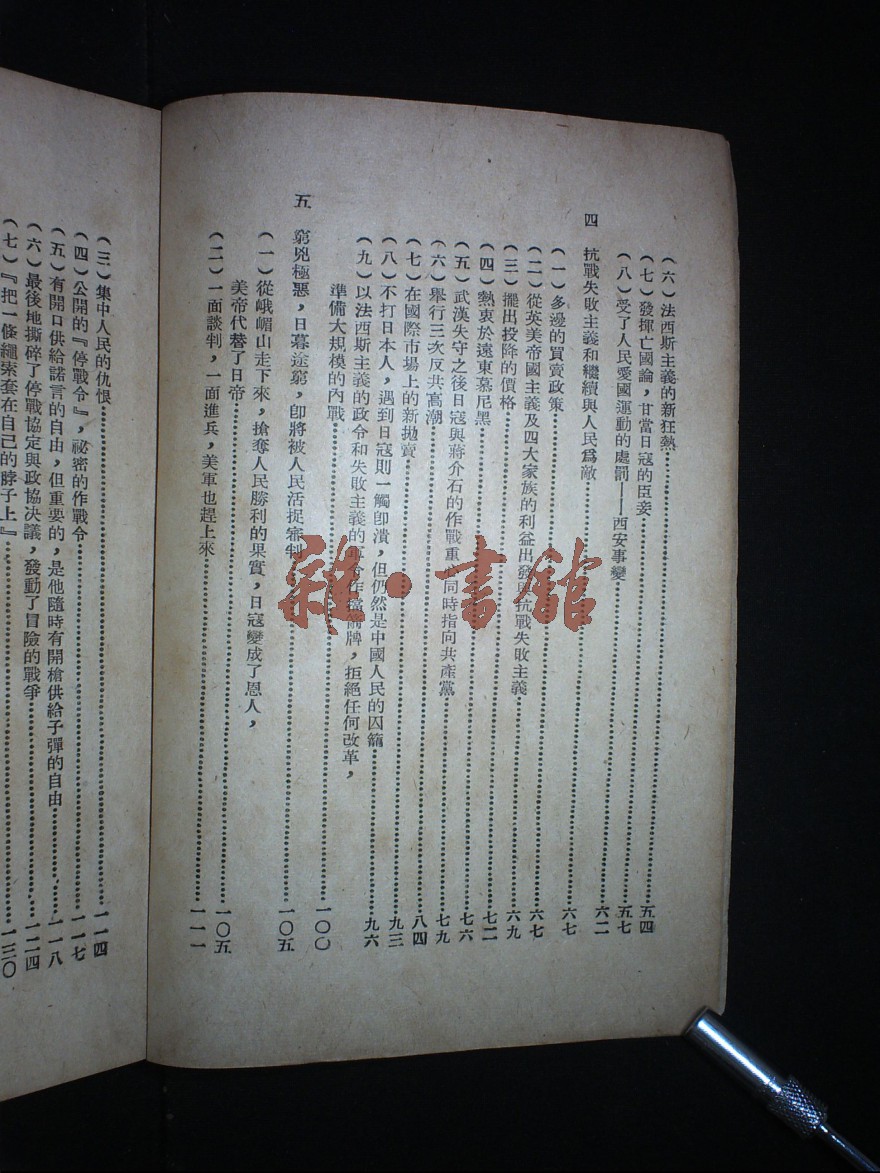 (六)法西斯主義的新狂熱……五四
(七)發揮亡國論,甘當日寇的臣妾……五七
(八)受了人民愛國運動的處罰——西安事變……六二
四 抗戰失敗主義和繼續與人民爲敵……六七
(一)多邊的買賣政策……六七
(二)從英美帝國主義及四大家族的利益出發 抗戰失敗主義……六九
(三)擺出投降的價格……七二
(四)熱衷於遠東慕尼黑……七六
(五)武漢失守之後日寇與蔣介石的作戰重心同時指向共產黨……七九
(六)舉行三次反共高潮……八四
(七)在國際市場上的新拋賣……九三
(八)不打日本人,遇到日寇則一觸卽潰,但仍然是中國人民的囚籠……九六
(九)以法西斯主義的政令和失敗主義的軍令作擋箭牌,拒絕任何改革,
準備大規模的內戰……一〇〇
五 窮兇極惡,日暮途窮,卽將被人民活捉審判……一〇五
(一)從峨嵋山走下來,搶奪人民勝利的果實,日寇變成了恩人,
美帝代替了日帝……一〇五
(二)一面談判,一面進兵,美軍也趕上來……一一一
(三)集中人民的仇恨……一一四
(四)公開的『停戰令』,祕密的作戰令……一一七
(五)有開口供給諾言的自由,但重要的,是他隨時有開槍供給子彈的自由……一一八
(六)最後地撕碎了停戰協定與政協決議,發動了冒險的戰爭……一二四
(七)『把一條繩索套在自己的脖子上』……一三〇
雜·書館